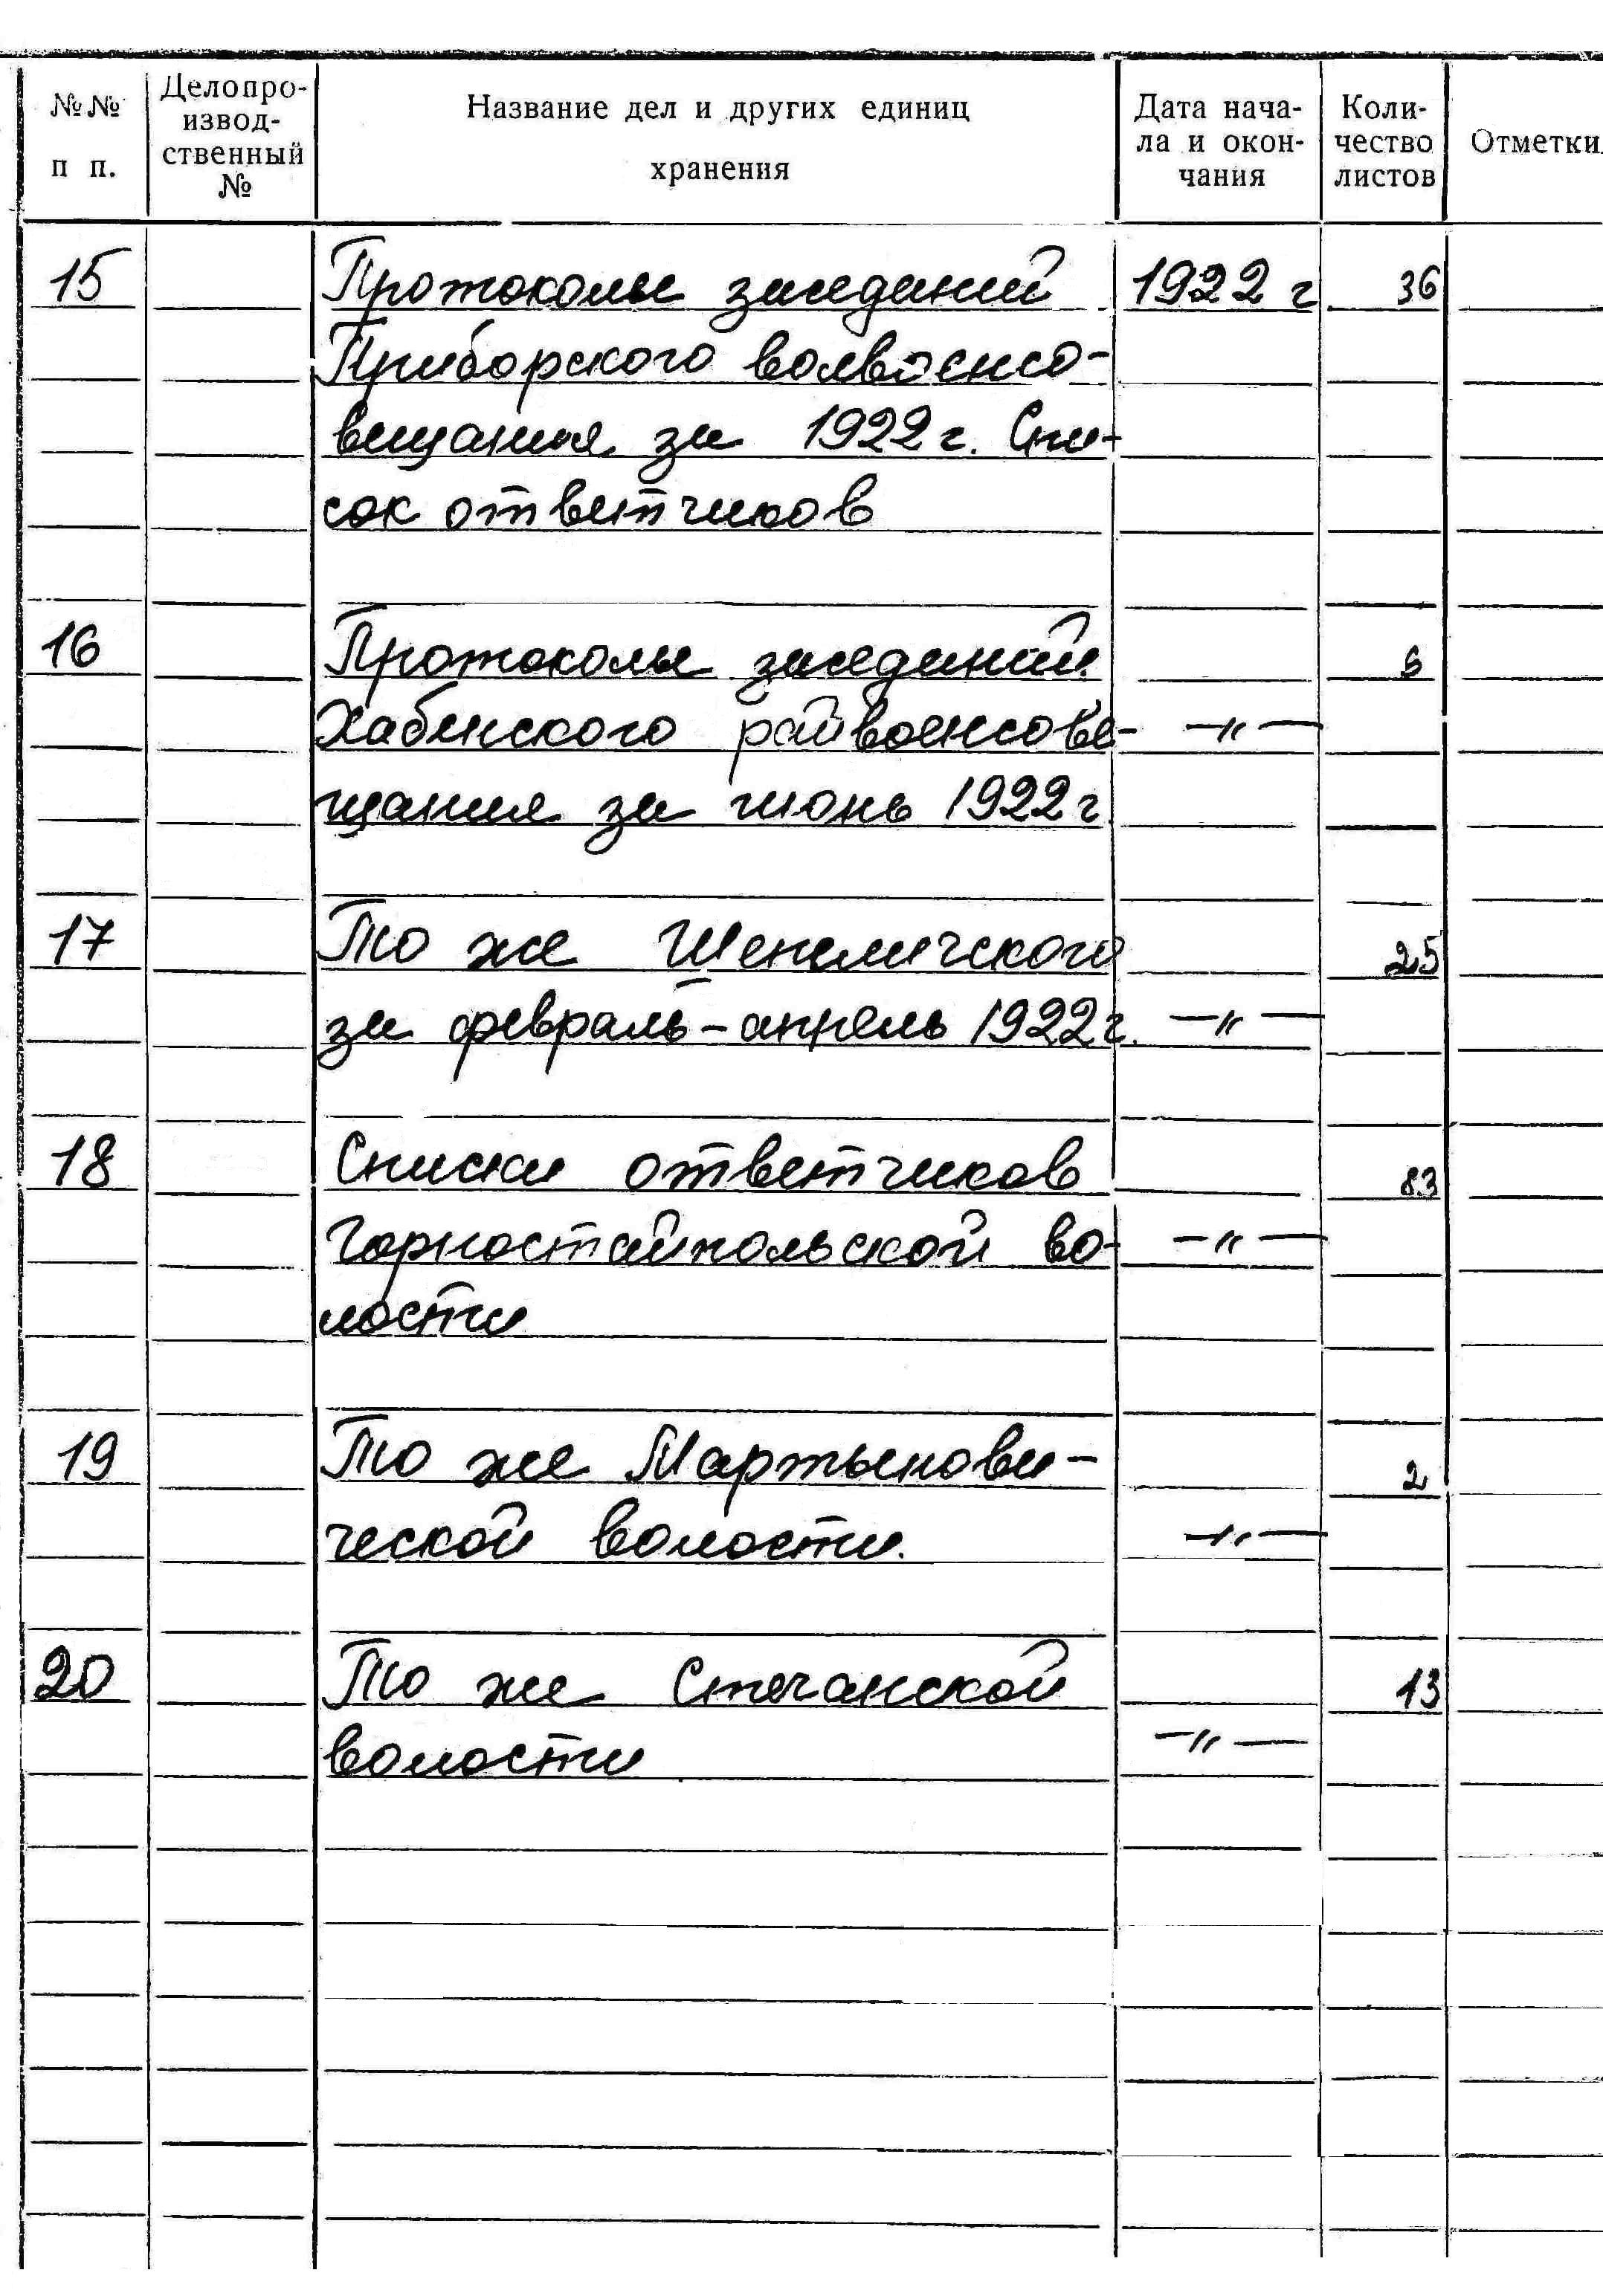 №№ п п.
Делопро-
извод-
ственный
№
Название дел и других единиц
хранения
Дата нача-
ла и окон-
чания
Коли-
чество
листов
Отметки
15 Протоколы заседаний 1922 г 36
Приборского волвоенсо-
вещания за 1922 г. Спи-
сок ответчиков
16 Протоколы заседаний
Хабенского райвоенсове- -〃-
щания за июнь 1922 г
17 То же Шепеличского 25
за февраль-апрель 1922 г. -〃-
18 Списки ответчиков 83
Горностайпольской во- -〃-
лости
19 То же Мартынови- 2
ческой волости. -〃-
20 То же Стечанской 13
волости -〃-